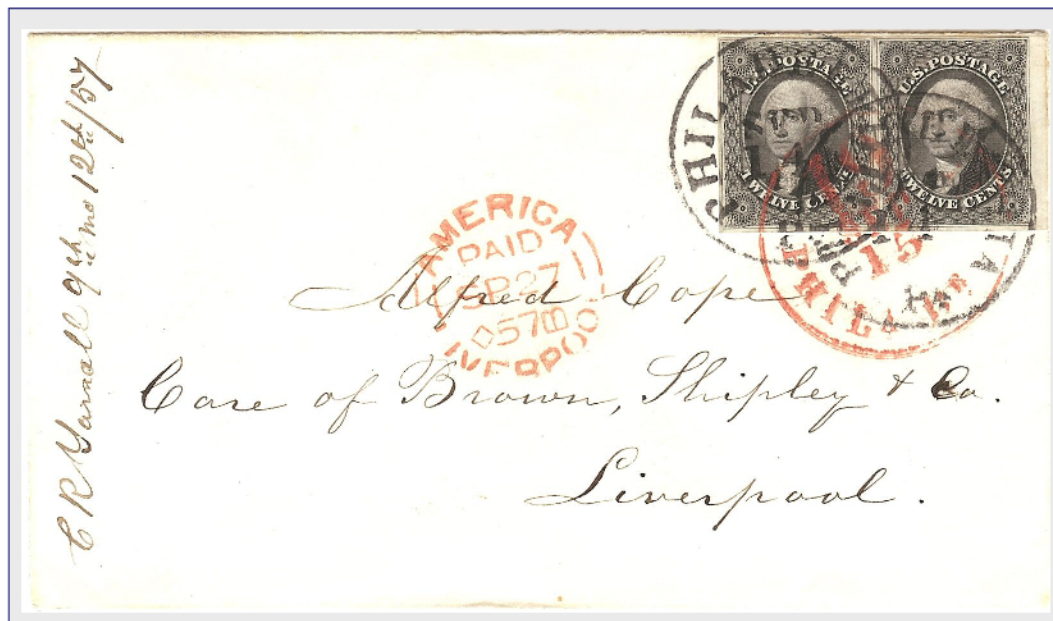 C R Yarnall 9th mo 12th/57
U.S. POSTAGE
TWELVE CENTS
U.S. POSTAGE
TWELVE CENTS
AMERICA
PAID
SP 27
57B
LIVERPOOL
15
PHILA
Alfred Cope
Care of Brown, Shipley & Co.
Liverpool.